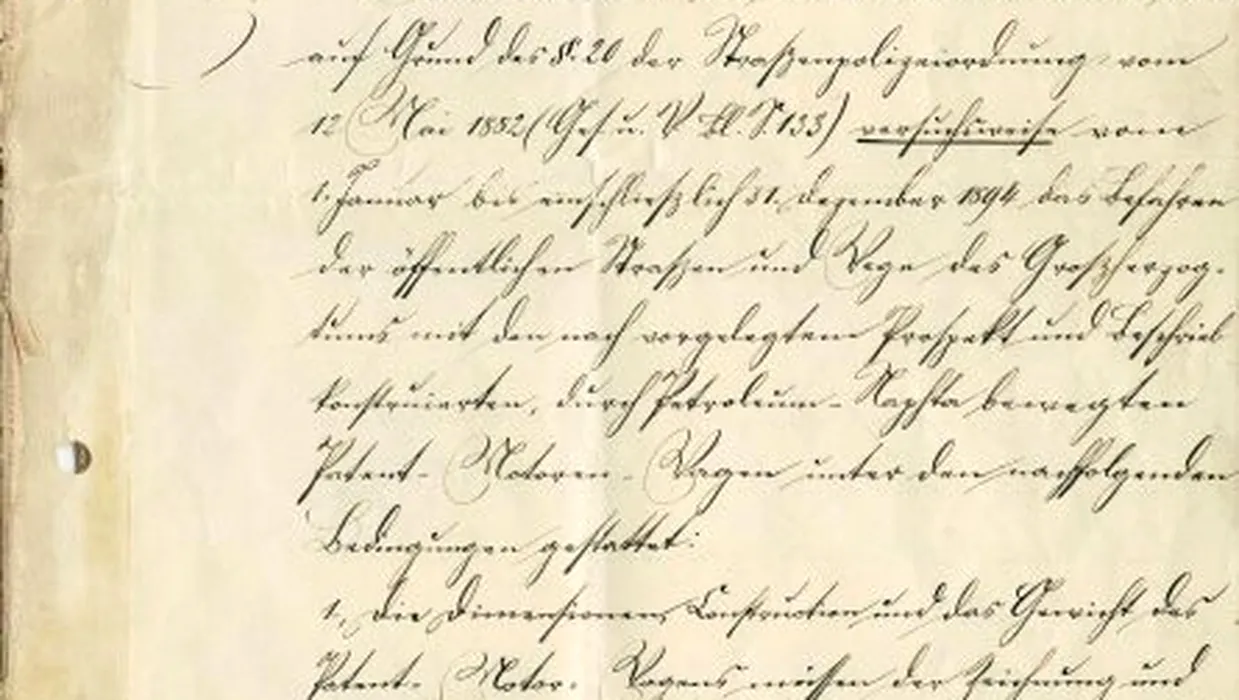 auf Grund des §. 20 der Straßenpolizeiordnung vom
12 Mai 1882 (Ges. u. V. Bl. S. 133) versuchsweise vom
1. Januar bis einschließlich 31. Dezember 1894 das Befahren
der öffentlichen Straßen und Wege des Großherzog-
tums mit den nach vorgelegtem Prospekt und Beschrieb
konstruierten, durch Petroleum-Naphta bewegten
Patent-Motoren-Wagen unter den nachfolgenden
Bedingungen gestattet:
1, Die Dimensionen, Construction und das Gewicht des
Patent-Motor-Wagens müssen der Zeichnung und